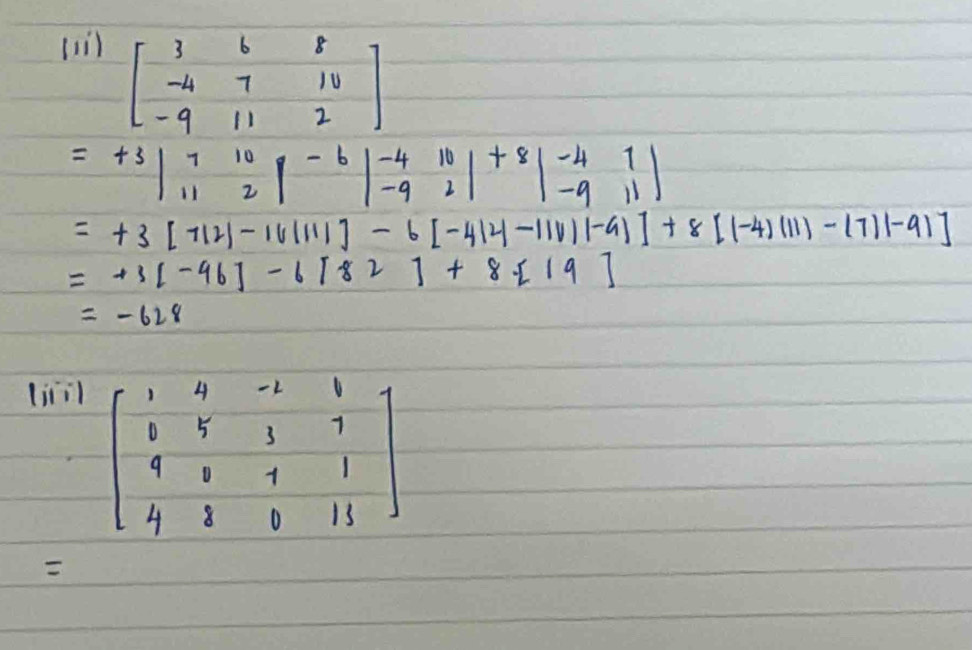 (ii) [ 3 6 8
-4 7 10
-9 11 2 ]
= +3 | 7 10 | - 6 | -4 10 | + 8 | -4 7 |
11 2 -9 2 -9 11
= +3 [ 7(2) - 10(11) ] - 6 [ -4(2) - (10)(-9) ] + 8 [ (-4)(11) - (7)(-9) ]
= +3 [ -96 ] - 6 [ 82 ] + 8 [ 19 ]
= -628
(iii) [ 1 4 -2 0
0 5 3 7
9 0 7 1
4 8 0 13 ]
=